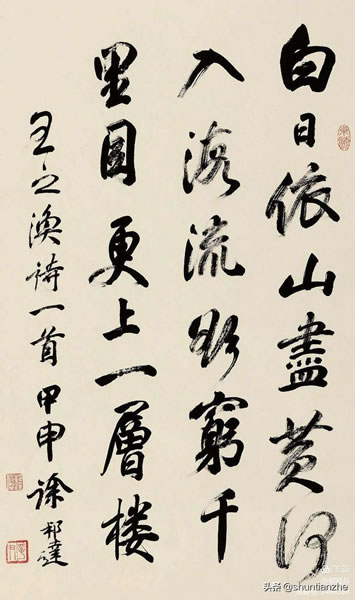 白日依山盡黄河
入海流欲窮千
里目更上一層楼
王之渙詩一首 甲申 徐邦達
头条 @shuntianzhe